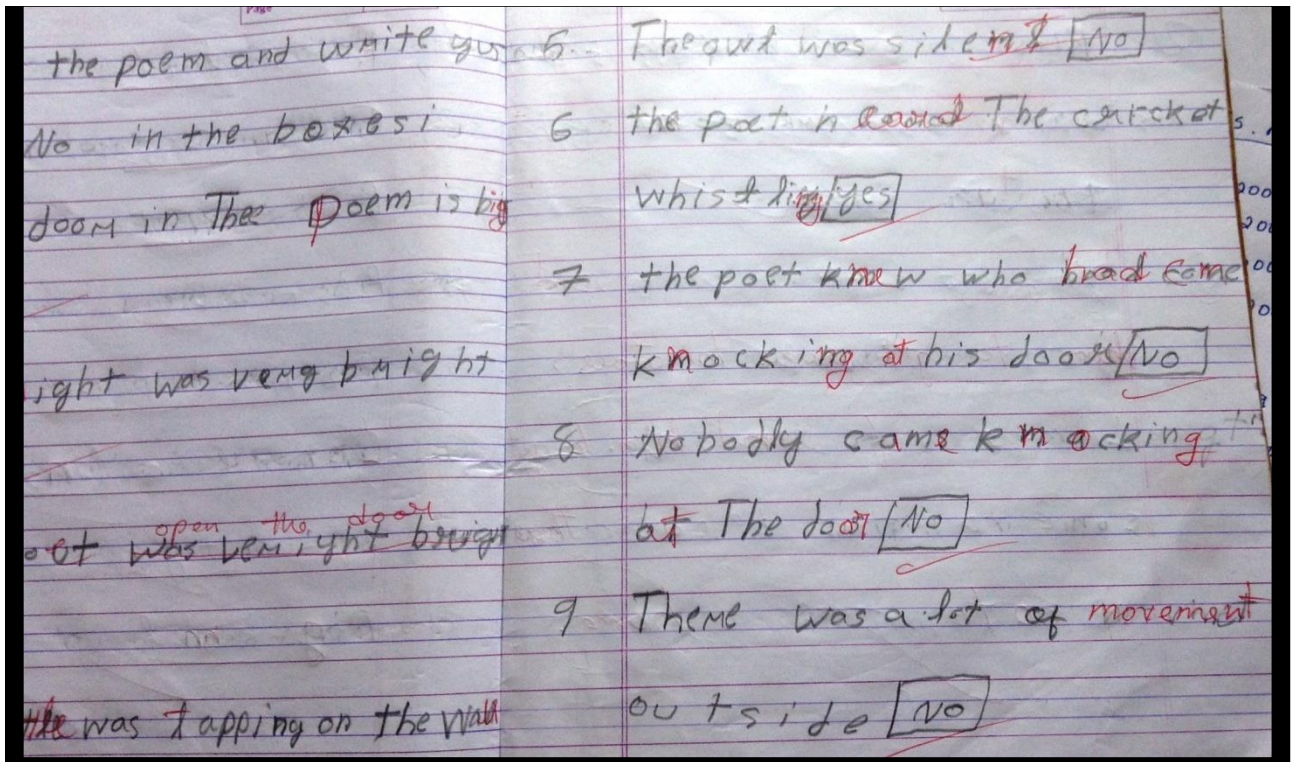 Page
the poem and write
No in the boxesi
door in Thee Poem is big
ight was verg bright
open the door
oet was brigh
was tapping on the wall
5 The owl was silent No
6 the poet h The cricket
whistling yes
7 the poet knew who had come
knocking at his door No
8 Nobodly came knocking
at The door No
9 There was a lot of movement
outside No
s.
200
200